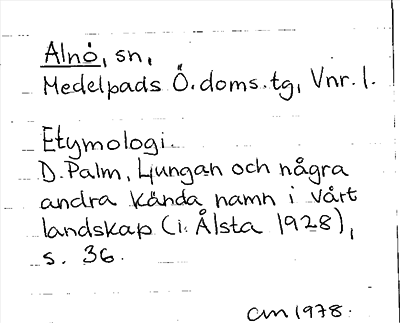 Alnö, sn,
Medelpads Ö. doms. tg, Vnr. 1.
Etymologi.
D. Palm, Ljungan och några
andra kända namn i vårt
landskap (i: Ålsta 1928),
s. 36.
am 1978.